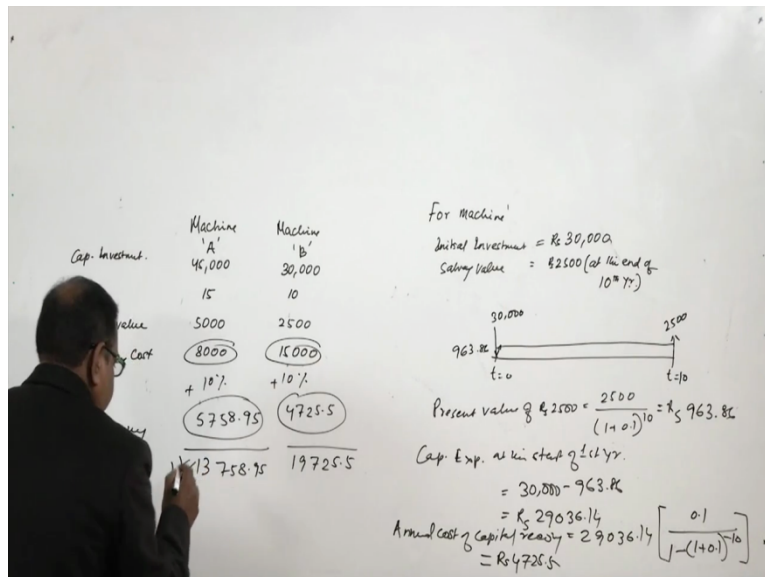 Machine 'A' Machine 'B'
Cap. Investment. 45,000 30,000
15 10
value 5000 2500
Cost 8000 15000
+ 10% + 10%
5758.95 4725.5
13758.95 19725.5
For Machine'
Initial Investment = Rs 30,000
Salvage Value = Rs 2500 (at the end of 10th Yr)
30,000 2500
963.86
t=0 t=10
Present value of Rs 2500 = 2500 / (1+0.1)^10 = Rs 963.86
Cap. Exp. at the start of 1st yr.
= 30,000 - 963.86
= Rs 29036.14
Annual cost of capital = 29036.14 [ 0.1 / 1-(1+0.1)^-10 ]
= Rs 4725.5